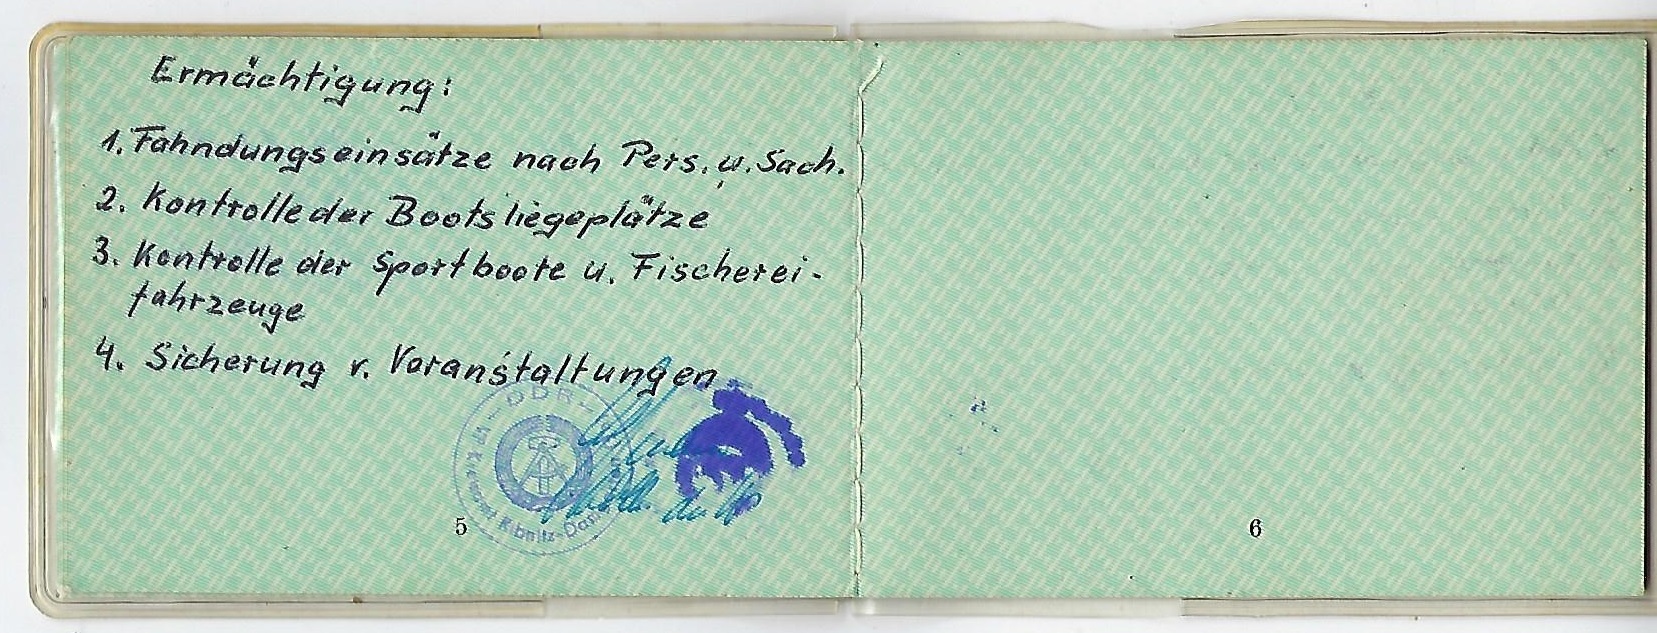 Ermächtigung:
1. Fahndungseinsätze nach Pers. u. Sach.
2. Kontrolle der Bootsliegeplätze
3. Kontrolle der Sportboote u. Fischerei-
fahrzeuge
4. Sicherung v. Veranstaltungen
- DDR -
Ribnitz-Dam
5
6